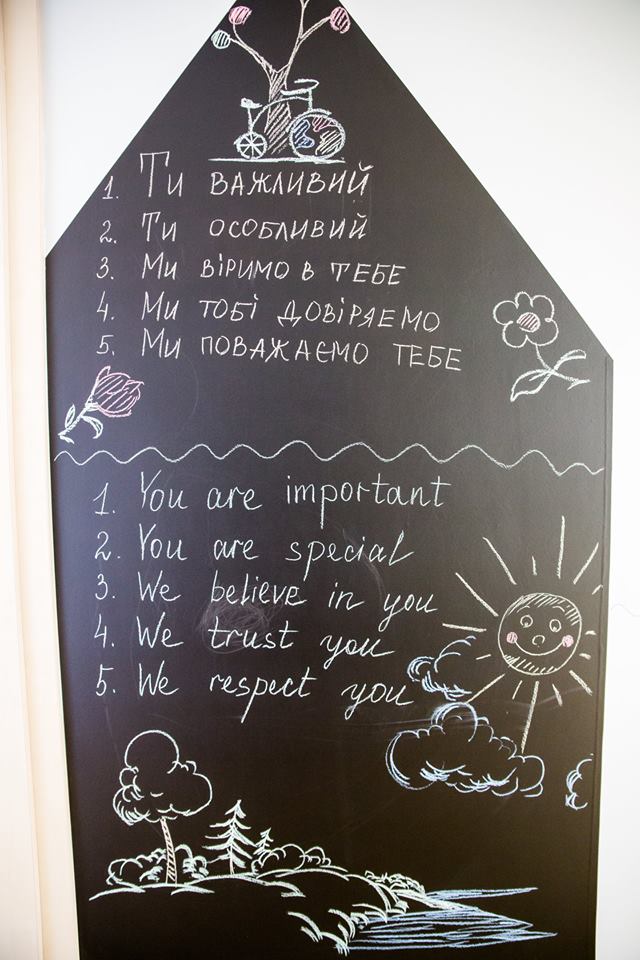 1. Ти ВАЖЛИВИЙ
2. Ти ОСОБЛИВИЙ
3. Ми ВіРИМО В ТЕБЕ
4. Ми ТОБі ДОВіРЯЕМО
5. Ми ПОВАЖАЄМО ТЕБЕ
1. You are important
2. You are special
3. We believe in you
4. We trust you
5. We respect you